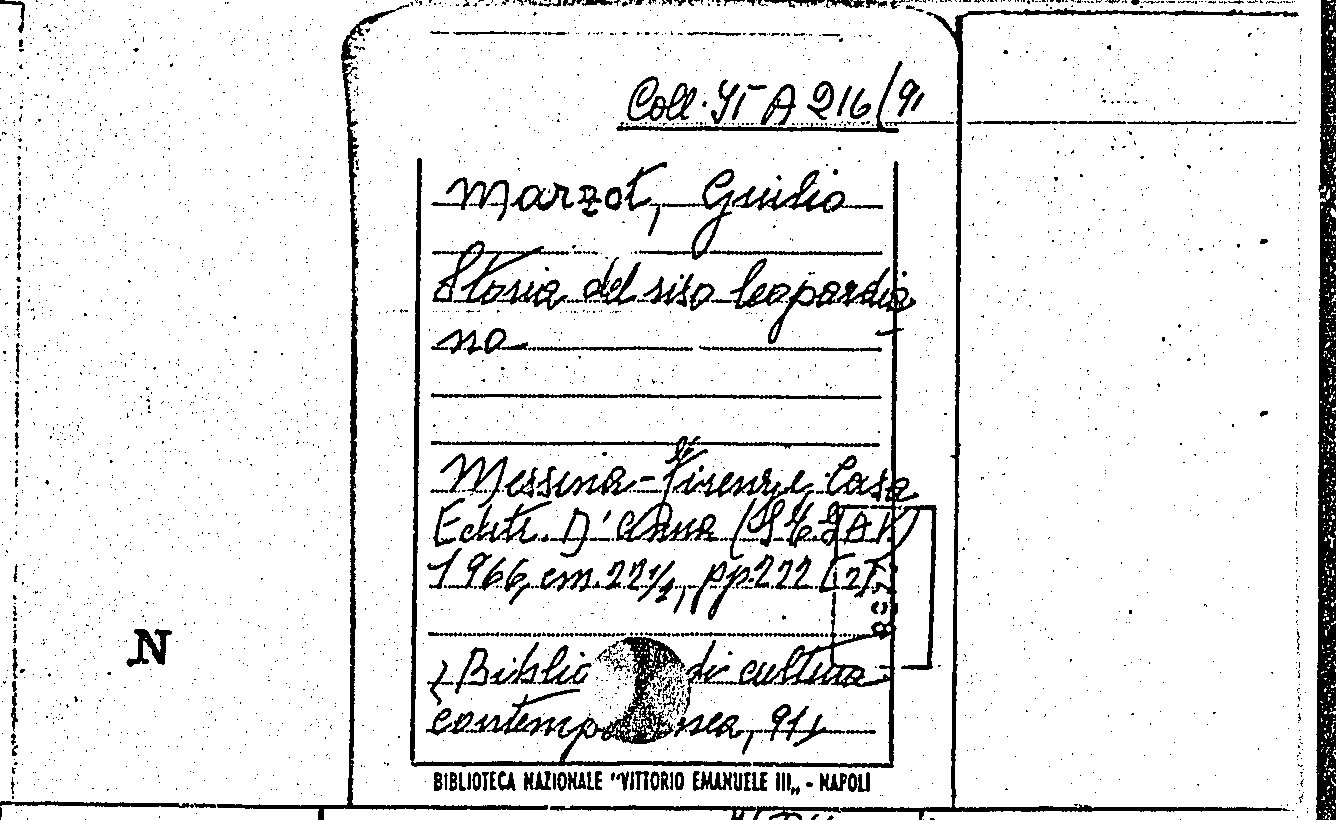 Coll. YI A 216/91
Marzot, Giulio
Storia del riso leopardia
no
Messina-Firenze, Casa
Edit. D'Anna
1966, cm. 22½, pp. 222 [2]
(Biblio di cultura
contempo nea, 91)
BIBLIOTECA NAZIONALE "VITTORIO EMANUELE III„ - NAPOLI
N